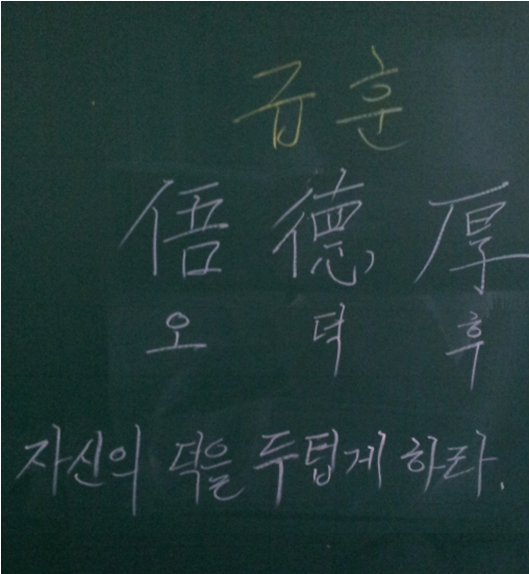 급훈
俉 德 厚
오 덕 후
자신의 덕을 두텁게 하라.